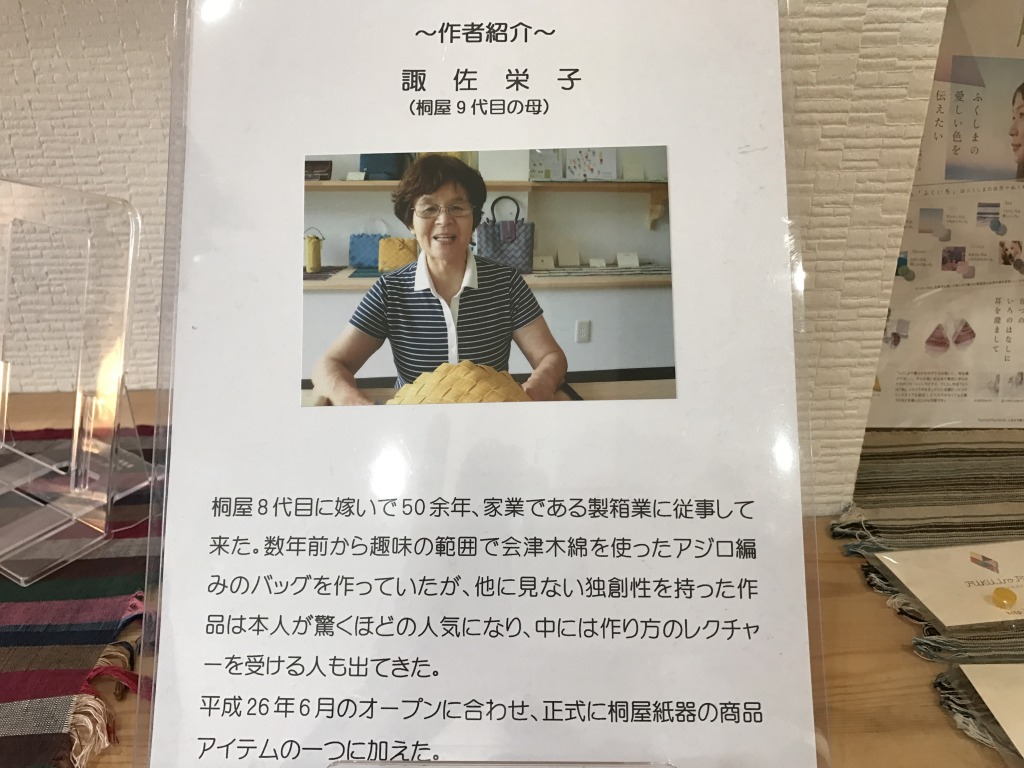 ～作者紹介～
諏 佐 栄 子
（桐屋９代目の母）
桐屋８代目に嫁いで５０余年、家業である製箱業に従事して
来た。数年前から趣味の範囲で会津木綿を使ったアジロ編
みのバッグを作っていたが、他に見ない独創性を持った作
品は本人が驚くほどの人気になり、中には作り方のレクチャ
ーを受ける人も出てきた。
平成２６年６月のオープンに合わせ、正式に桐屋紙器の商品
アイテムの一つに加えた。
ふくしまの
愛しい色を
伝えたい
いろのはなしに
耳を澄まして